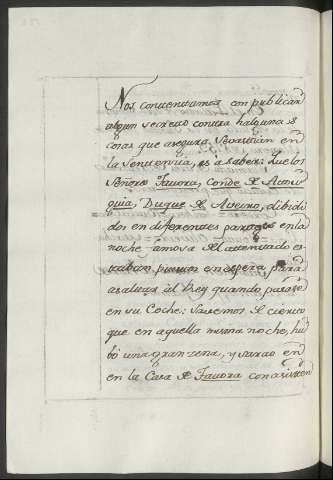 Nos contentamos con publicar
algun secretto contra halguna s
cosas que asegura Sevastian en
la Sentencia, es a saber: Que los
Señores Tavora, Conde de Atou
guia, Duque de Aveiro, dibidi
dos en diferentes parages en la
noche famosa del attentado es
trabam puestos en espera, para
asaltar al Rey quando passase
en su Coche. Savemos de cierto
que en aquella misma noche, hu
bó una gran zena, y sarao en
en la Casa de Tavora con asisten